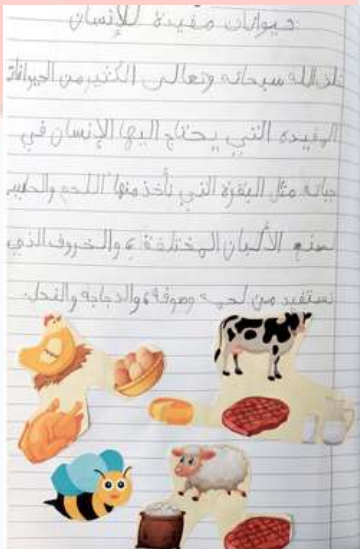 حيوانات مفيدة للإنسان
خلق الله سبحانه وتعالى الكثير من الحيوانات
المفيده التي يحتاج اليها الإنسان في
حياته مثل البقرة التي نأخذ منها اللحم والحليب
صنع الألبان المختلفة، والخروف الذي
نستفيد من لحمه وصوفة، والدجاجة والنحل.